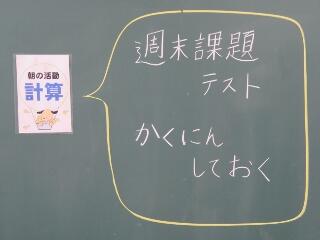 朝の活動
計算
週末課題
テスト
かくにん
しておく